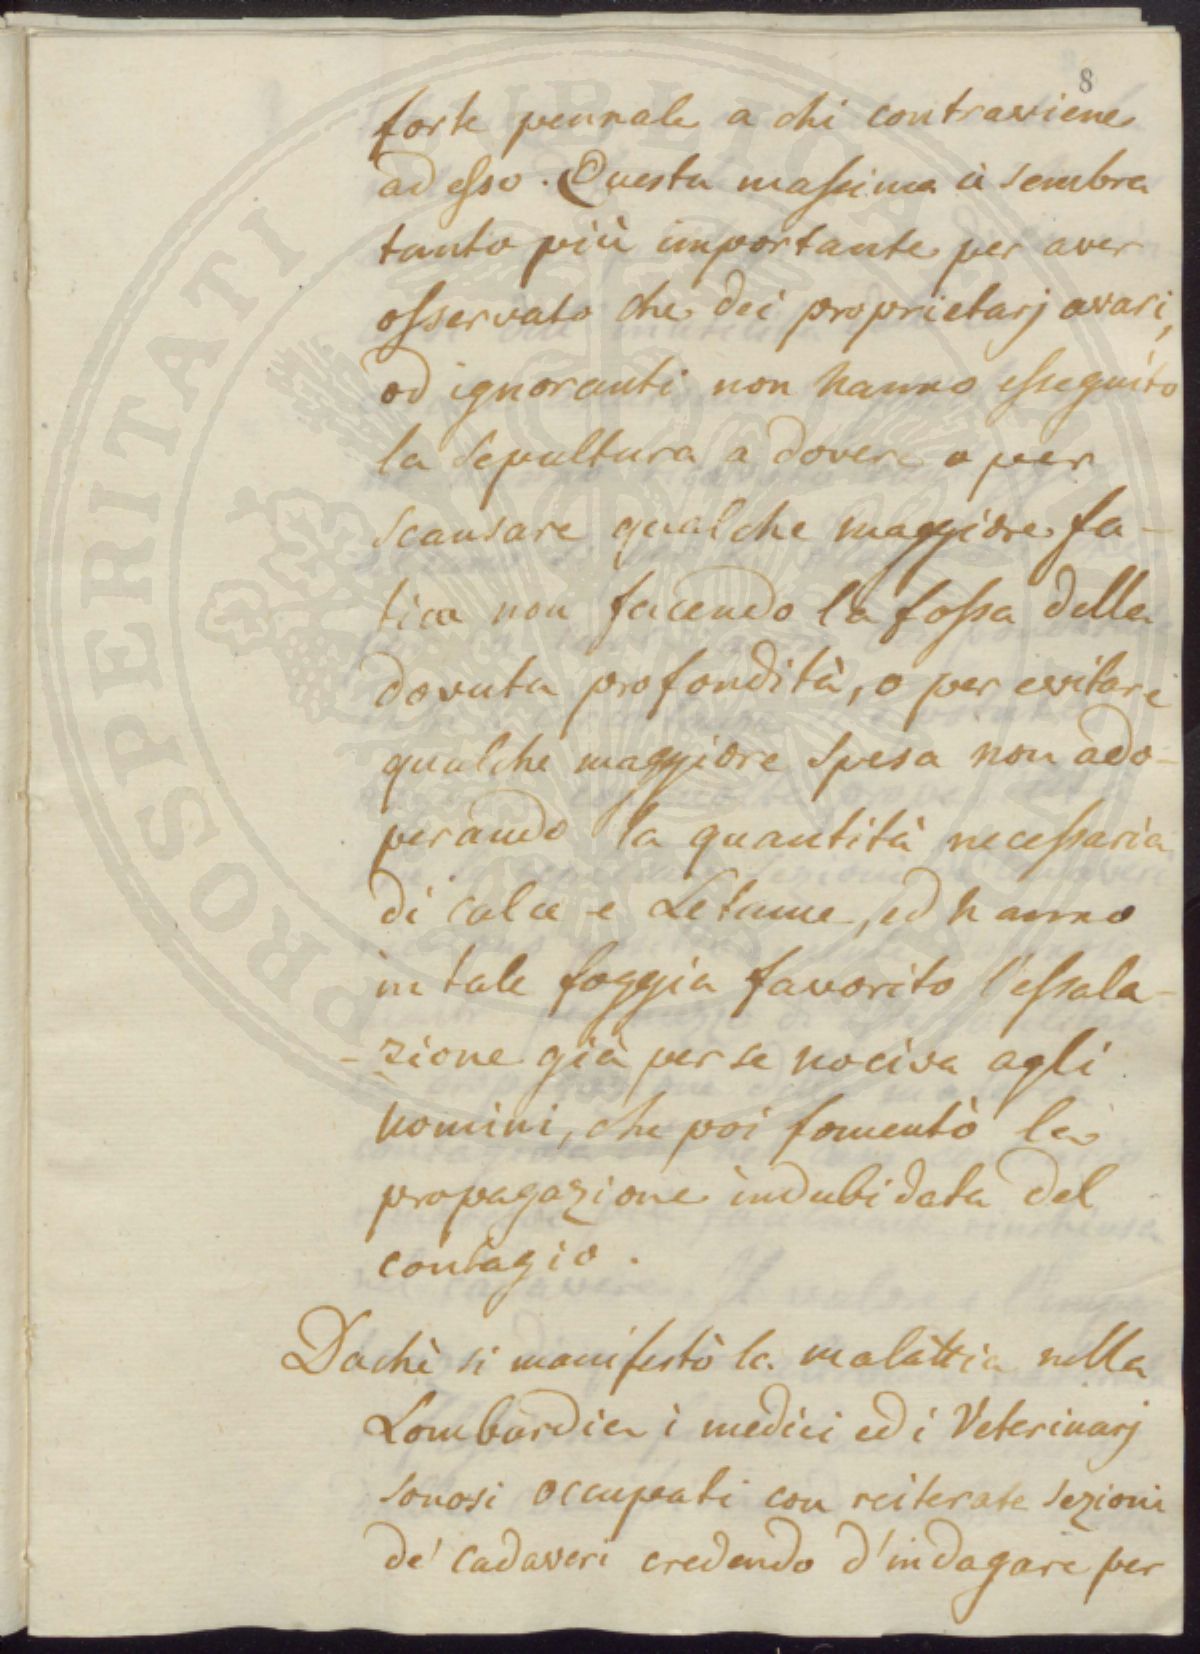 8
forte pennale a chi contraviene
ad esso. Questa massima ci sembra
tanto più importante per aver
osservato che dei proprietarj avari,
od ignoranti non hanno esseguito
la sepultura a dovere o per
scansare qualche maggiore fa-
tica non facendo la fossa della
dovuta profondità, o per evitare
qualche maggiore spesa non ado-
perando la quantità necessaria
di calce e Letame, ed hanno
in tale foggia favorito l'essala-
-zione già per se nociva agli
uomini, che poi fomentò la
propagazione indubidata del
contagio.
Dachè si manifestò la malattia nella
Lombardia i medici ed i Veterinarj
sonosi occupati con reiterate sezioni
de' cadaveri credendo d'indagare per
PROSPERITATI PUBLICAE